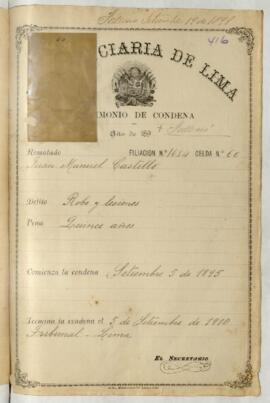 Falleció Setiembre 19 de 1898
416
CIARIA DE LIMA
IMONIO DE CONDENA
Rematado FILIACIÓN Nº 1684 CELDA Nº 60
Juan Manuel Castillo
Delito Robo y lesiones
Pena Quince años
Comienza la condena Setiembre 5 de 1895
Termina la condena el 5 de Setiembre de 1910
Tribunal - Lima
EL SECRETARIO